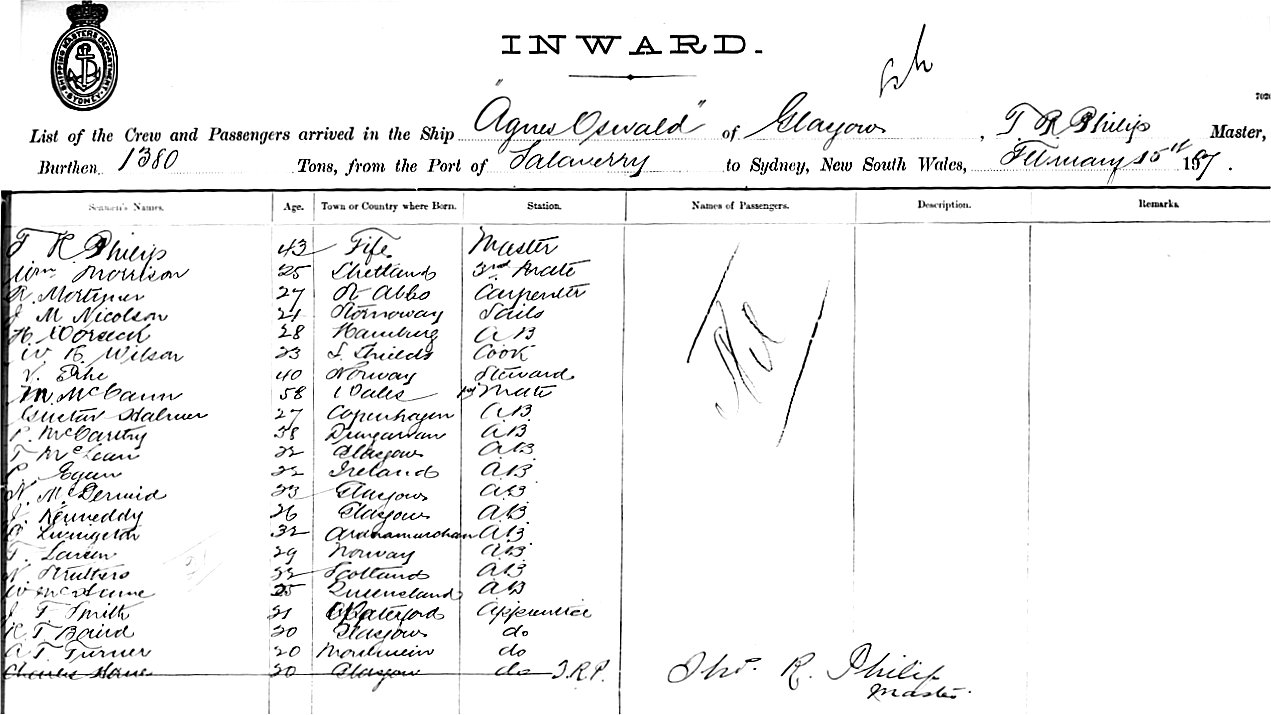 SHIPPING MASTERS DEPARTMENT SYDNEY
INWARD.
7020
List of the Crew and Passengers arrived in the Ship "Agnes Oswald" of Glasgow, T. R. Philip Master,
Burthen 1380 Tons, from the Port of Salaverry to Sydney, New South Wales, February 15th 187.
Seamen's Names. Age. Town or Country where Born. Station. Names of Passengers. Description. Remarks.
T R Philip 43 Fife Master
Wm Morrison 25 Shetland 3rd Mate
R. Mortimer 27 St Abbs Carpenter
J M Nicolson 24 Stornoway Sails
H. Worseck 28 Hamburg AB
W B. Wilson 23 S. Shields Cook
V. 40 Norway Steward
M. McCann 58 Wales 1st Mate
Gustav Halmer 27 Copenhagen AB
P. McCarthy 38 Dungarvan AB
T McLean 22 Glasgow AB
P. Egan 22 Ireland AB
N. McDermid 23 Glasgow AB
J. Kenneddy 26 Glasgow AB
Livingston 32 Ardnamurchan AB
T. Larsen 29 Norway AB
N. Struthers 22 Scotland AB
W McHame 25 Queensland AB
J T. Smith 21 Waterford Apprentice
R T. Baird 20 Glasgow do
A T. Turner 20 Moulmein do
Charles Horne 20 Glasgow do T.R.P.
Nil
Tho. R. Philip
Master.